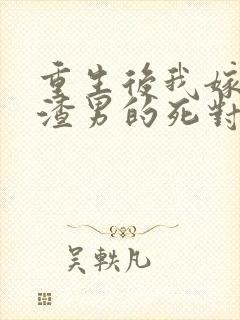 重生後我嫁
渣男的死對
吳軼凡